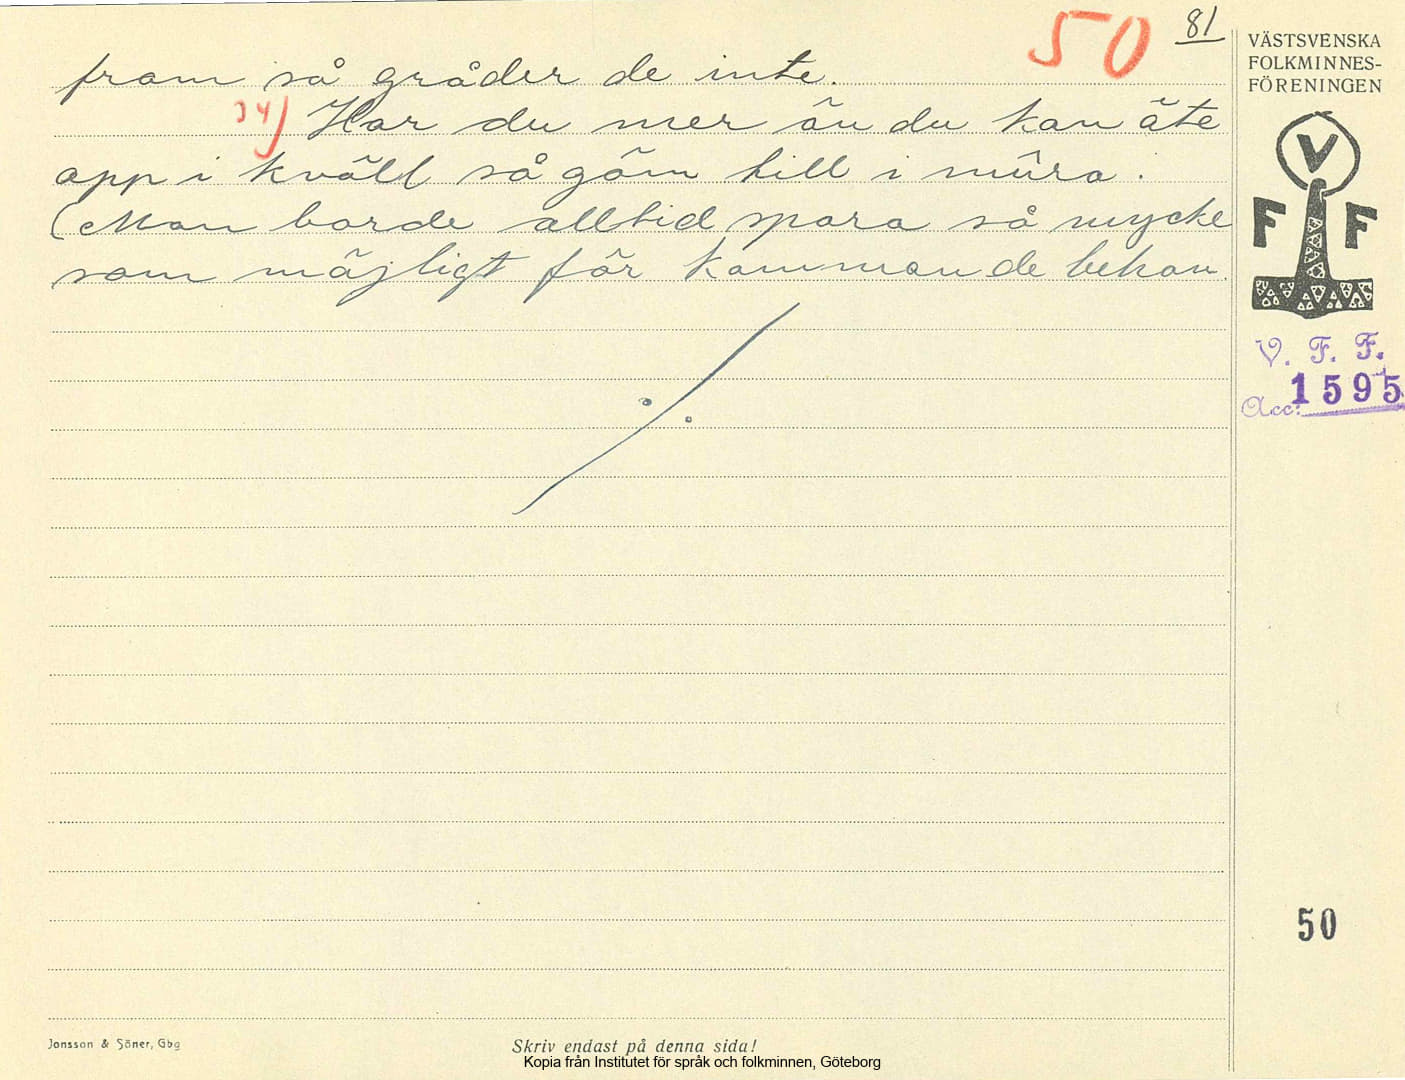 50 81
fram så gråder de inte.
34) Har du mer än du kan äte
opp i kväll så göm till i mûra.
(Man borde alltid spara så mycke
som möjligt för kommande behov.
VÄSTSVENSKA
FOLKMINNES-
FÖRENINGEN
V
F F
V. F. F.
Acc: 1595
50
Jonsson & Söner, Gbg
Skriv endast på denna sida!
Kopia från Institutet för språk och folkminnen, Göteborg